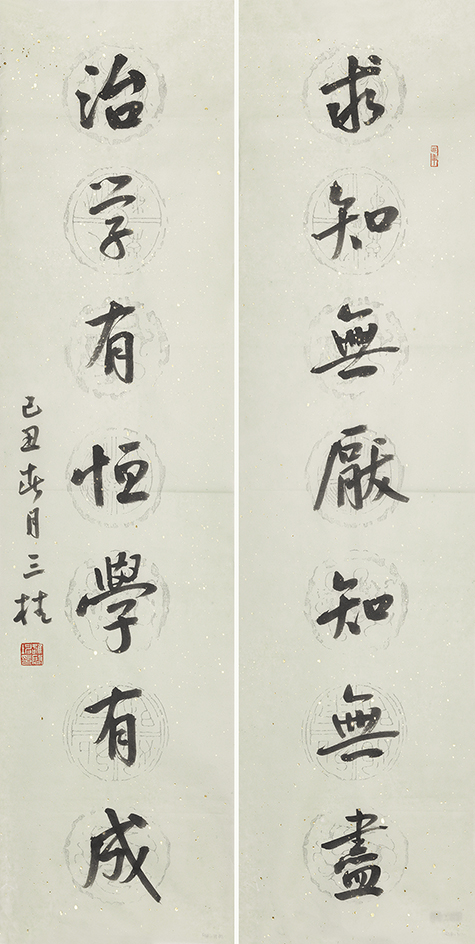 求知無厭知無盡
治学有恒學有成
己丑春月三桂